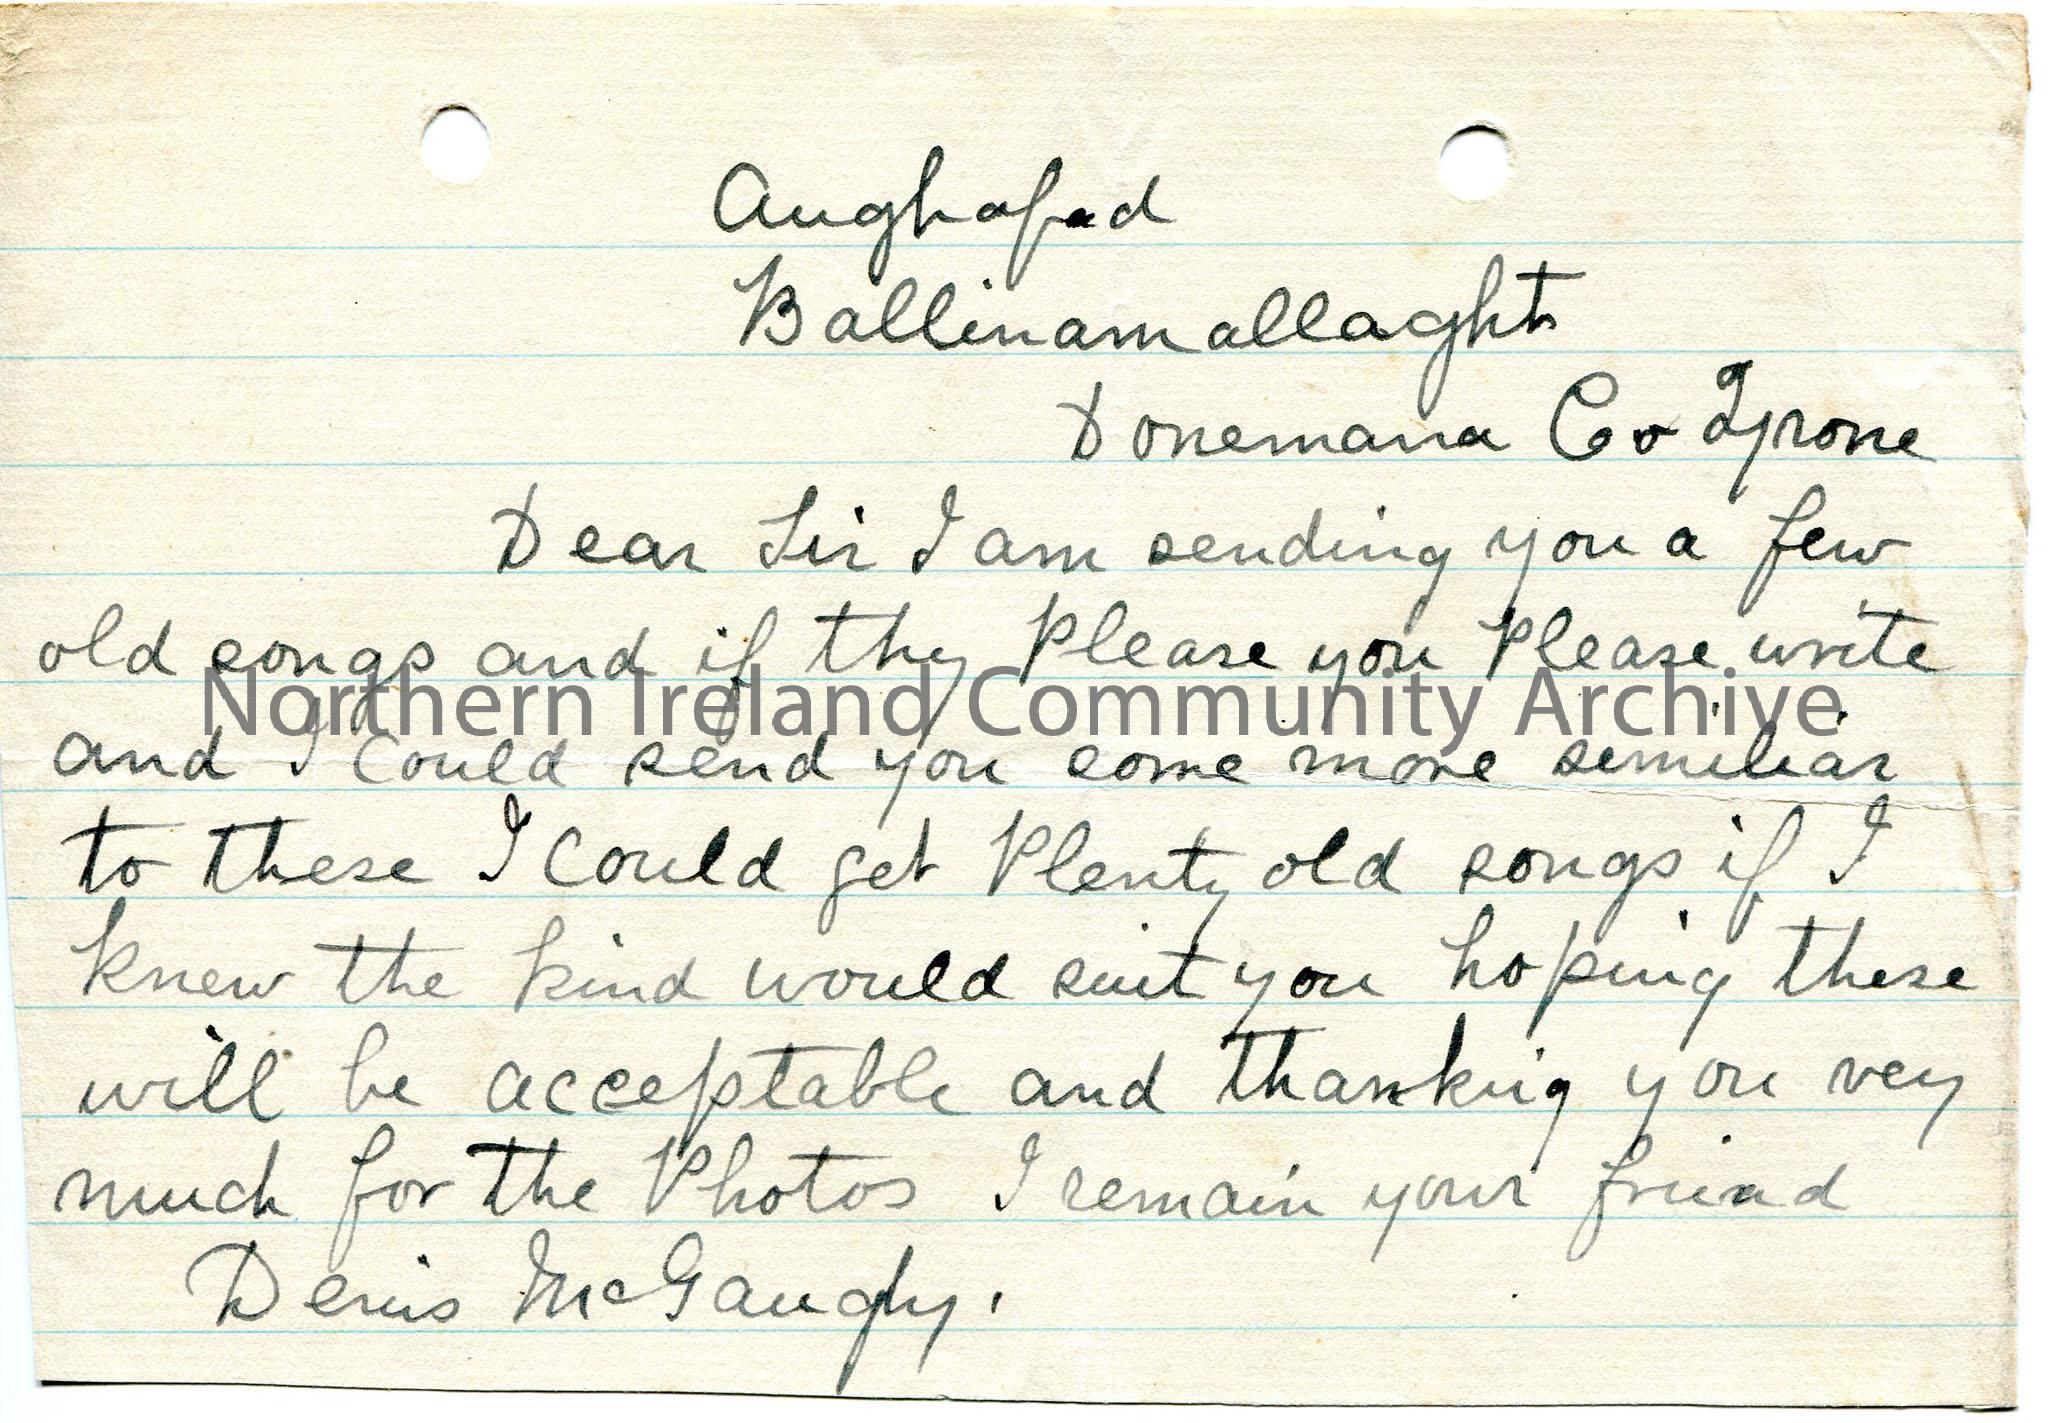 Aughafad
Ballinamallaght
Donemana Co Tyrone
Dear Sir I am sending you a few
old songs and if thy Please you Please write
Northern Ireland Community Archive
and I Could send you some more similiar
to these I Could get Plenty old songs if I
knew the kind would suit you hoping these
will be acceptable and thanking you very
much for the Photos I remain your friend
Denis McGaughy.